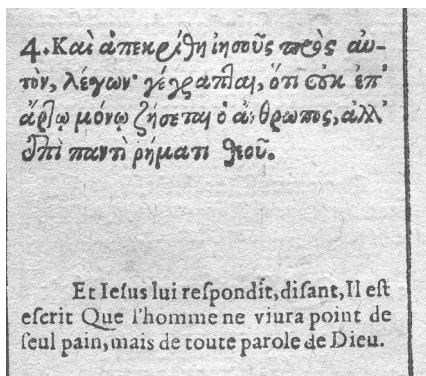 4. Καὶ ἀπεκρίθη ἰησοῦς πρὸς αὐ-
τὸν, λέγων· γέγραπται, ὅτι οὐκ ἐπ'
ἄρτῳ μόνῳ ζήσεται ὁ ἄνθρωπος, ἀλλ'
ἐπὶ παντὶ ῥήματι θεοῦ.
Et Ieſus lui reſpondit, diſant, Il eſt
eſcrit Que l'homme ne viura point de
ſeul pain, mais de toute parole de Dieu.